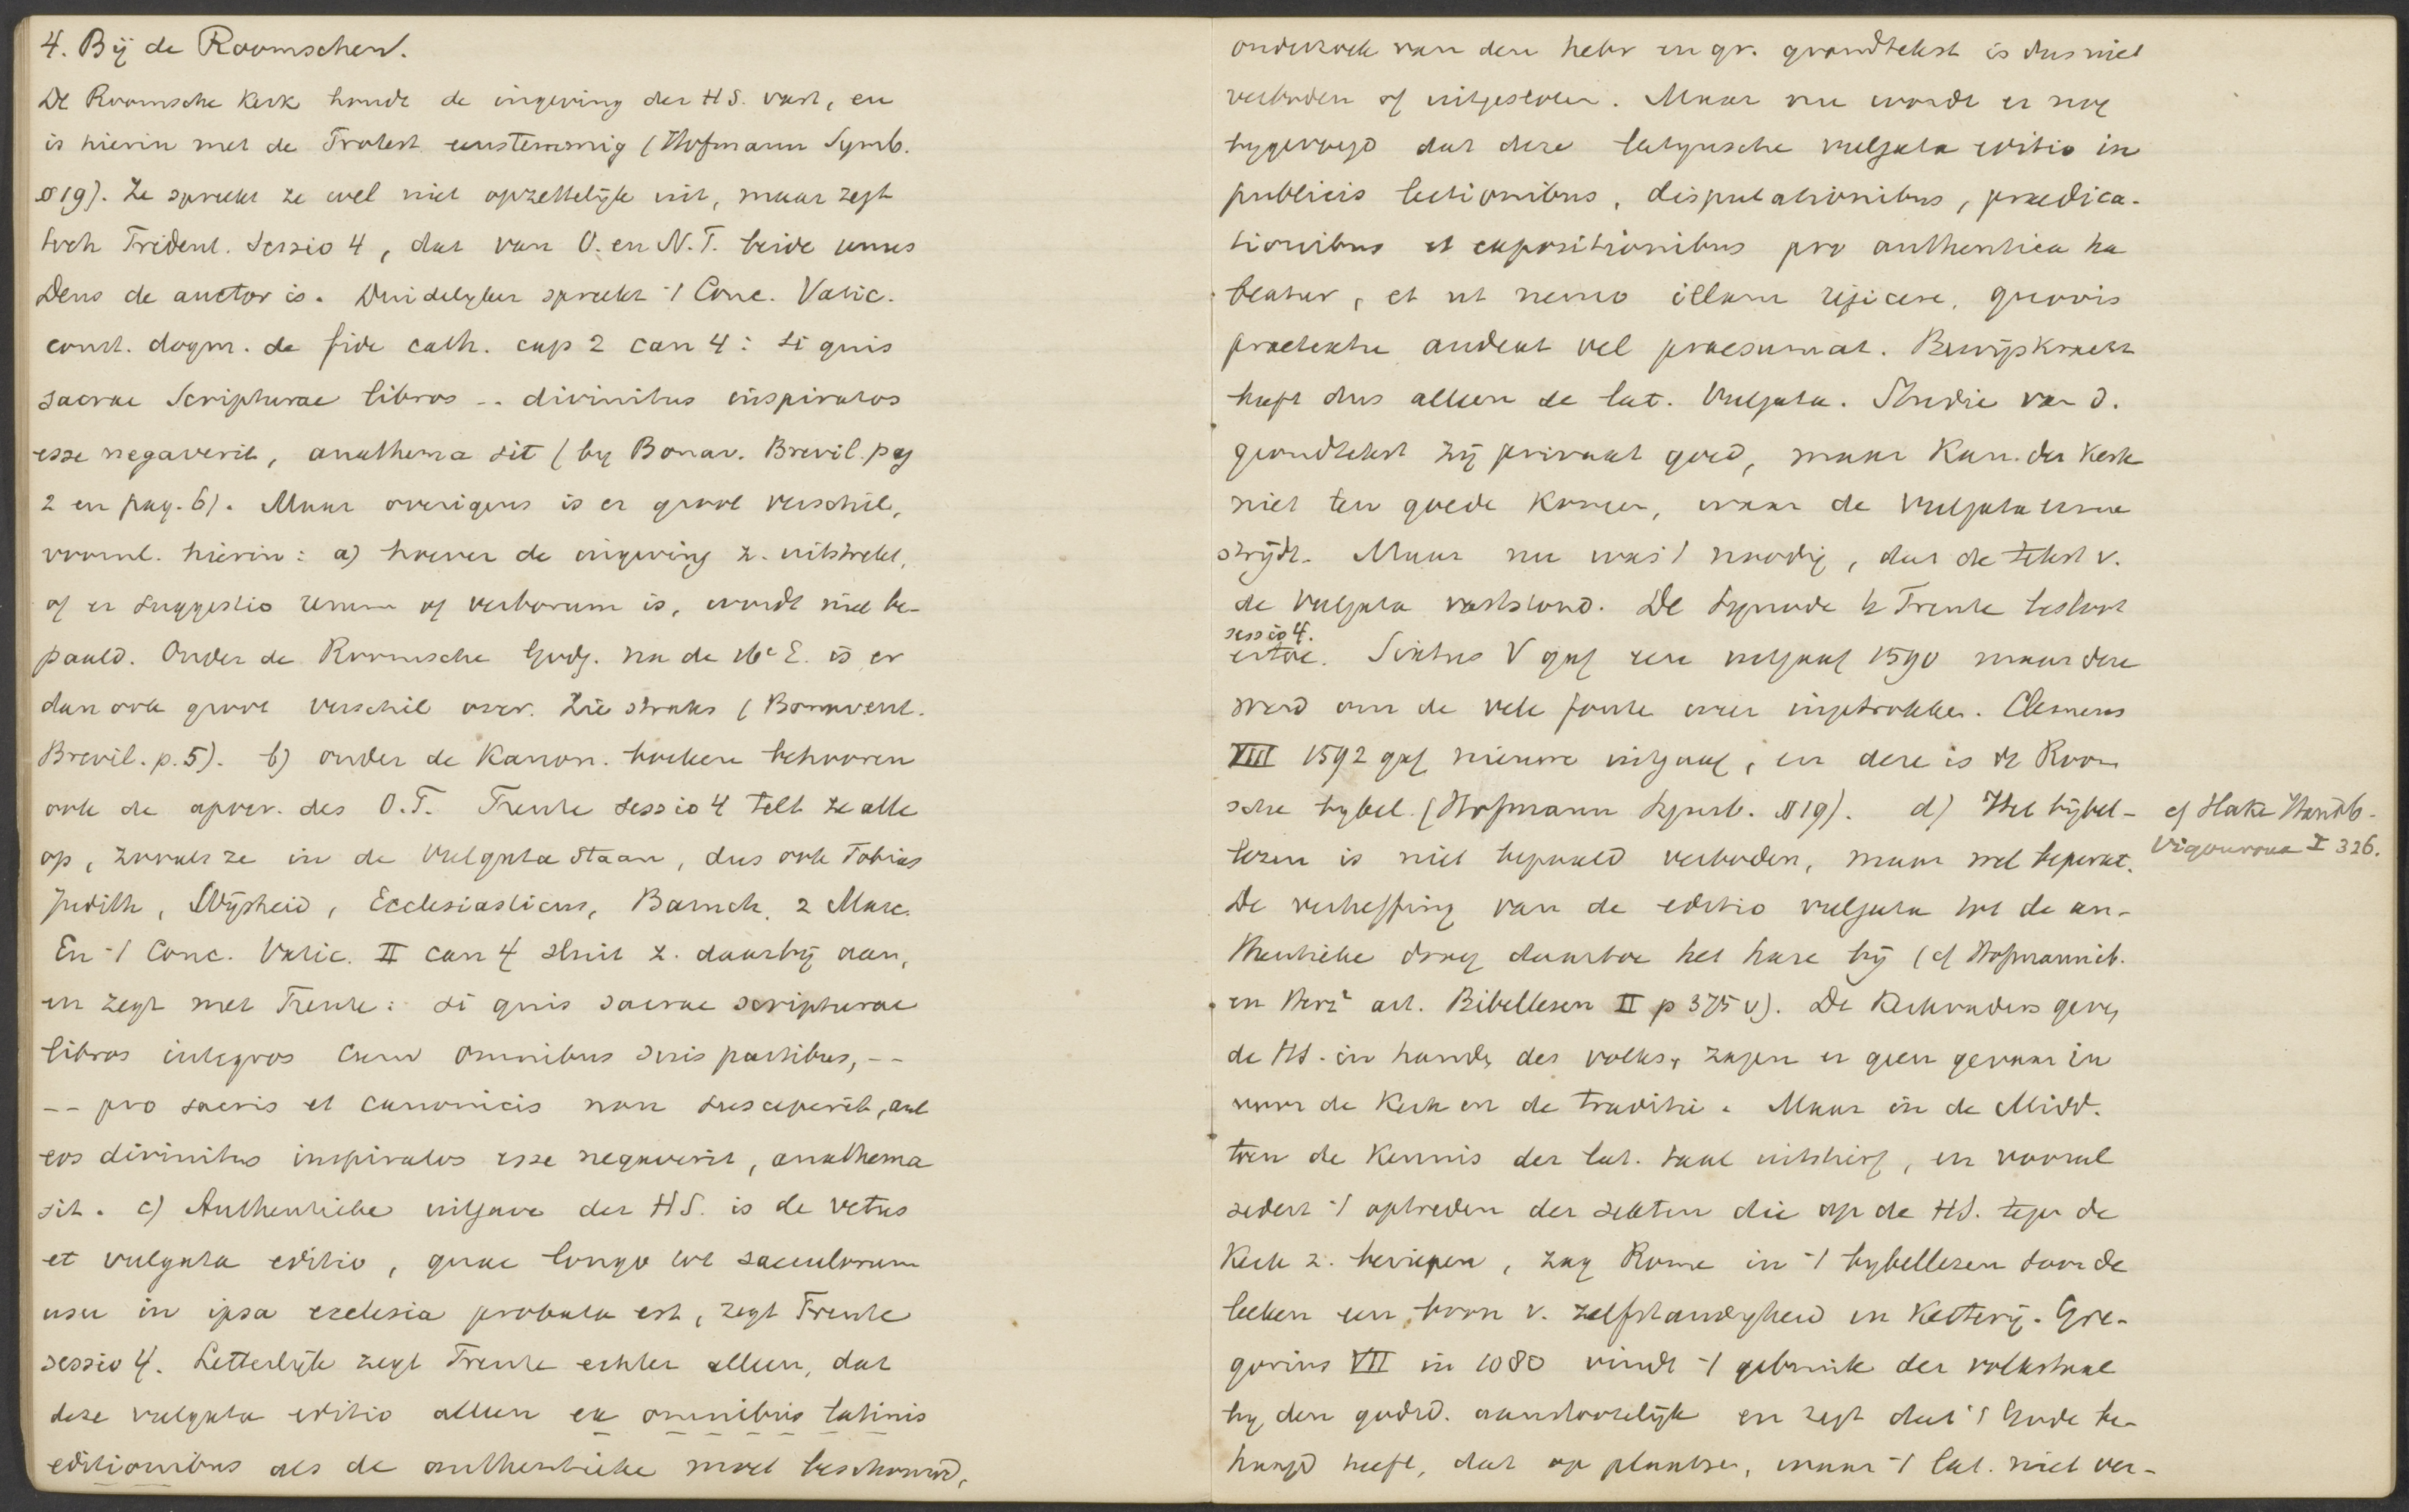 4. Bij de Roomschen.
De Roomsche Kerk houdt de ingeving der HS. vast, en
is hierin met de Protest eenstemmig (Hofmann Symb.
§ 19). Ze spreekt ze wel niet opzettelijk uit, maar zegt
toch Trident. Sessio 4, dat van O. en N.T. beide unus
Deus de auctor is. Duidelyker spreekt 't Conc. Vatic.
const. dogm. de fide cath. cap 2 can 4: Si quis
sacrae Scripturae libros -- divinitus inspiratos
esse negaverit, anathema sit (by Bonav. Brevil. pag
2 en pag. 6). Maar overigens is er groot verschil,
voornl. hierin: a) hoever de ingeving z. uitstrekt,
of er suggestio rerum of verborum is, wordt niet be-
paald. Onder de Roomsche Godg. na de 16e E. is er
dan ook groot verschil over. Zie straks (Bonavent.
Brevil. p. 5). b) onder de Kanon. boeken behooren
ook de apocr. des O.T. Trente sessio 4 telt ze alle
op, zooals ze in de Vulgata staan, dus ook Tobias
Judith, Wijsheid, Ecclesiasticus, Baruch, 2 Macc.
En 't Conc. Vatic. II can 4 sluit z. daarbij aan,
en zegt met Trente: si quis sacrae scripturae
libros integros cum omnibus suis partibus, --
-- pro sacris et canonicis non susceperit, aut
eos divinitus inspiratos esse negaverit, anathema
sit. c) Authentieke uitgave der HS. is de vetus
et vulgata editio, quae longo tot saeculorum
usu in ipsa ecclesia probata est, zegt Trente
sessio 4. Letterlijk zegt Trente echter alleen, dat
deze vulgata editio alleen ex omnibus latinis
editionibus als de authentieke moet beschouwd,
onderzoek van den hebr en gr. grondtekst is dus niet
verboden of uitgesloten. Maar nu wordt er nog
bygevoegd dat deze latynsche vulgata editio in
publicis lectionibus, disputationibus, praedica-
tionibus et expositionibus pro authentica ha
beatur, et ut nemo illam rejicere, quovis
praetextu audeat vel praesumat. Bewijskracht
heeft dus alleen de lat. Vulgata. Studie van d.
grondtekst zij privaat goed, maar Kan der Kerk
niet ten goede komen, waar de Vulgata ermee
strijdt. Maar nu was 't noodig, dat de tekst v.
de Vulgata vaststond. De Synode te Trente besloot
sessio 4.
ertoe. Sixtus V gaf eene uitgaaf 1590 maar deze
werd om de vele fouten weer ingetrokken. Clemens
VIII 1592 gaf nieuwe uitgaaf, en deze is de Room
sche bybel. (Hofmann Symb. § 19). d) Het bijbel-
lezen is niet bepaald verboden, maar wel beperkt.
De verheffing van de editio vulgata tot de au-
thentieke droeg daartoe het hare bij (cf Hofmann ib.
en Herz² art. Bibellesen II p 375 v). De Kerkvaders geven
de HS. in handen des volks, zagen er geen gevaar in
voor de Kerk en de traditie. Maar in de Midd.
toen de kennis der lat. taal uitstierf, en vooral
sedert 't optreden der sekten die op de HS. tegen de
Kerk z. beriepen, zag Rome in 't bybellezen door de
leeken een bron v. zelfstandigheid en Ketterij. Gre-
gorius VII in 1080 vindt 't gebruik der volkstaal
by den godsd. aanstootelijk en zegt dat 't Gode be-
haagd heeft, dat op plaatsen, waar 't lat. niet ver-
cf Hake Handb.
Vigouroux I 326.